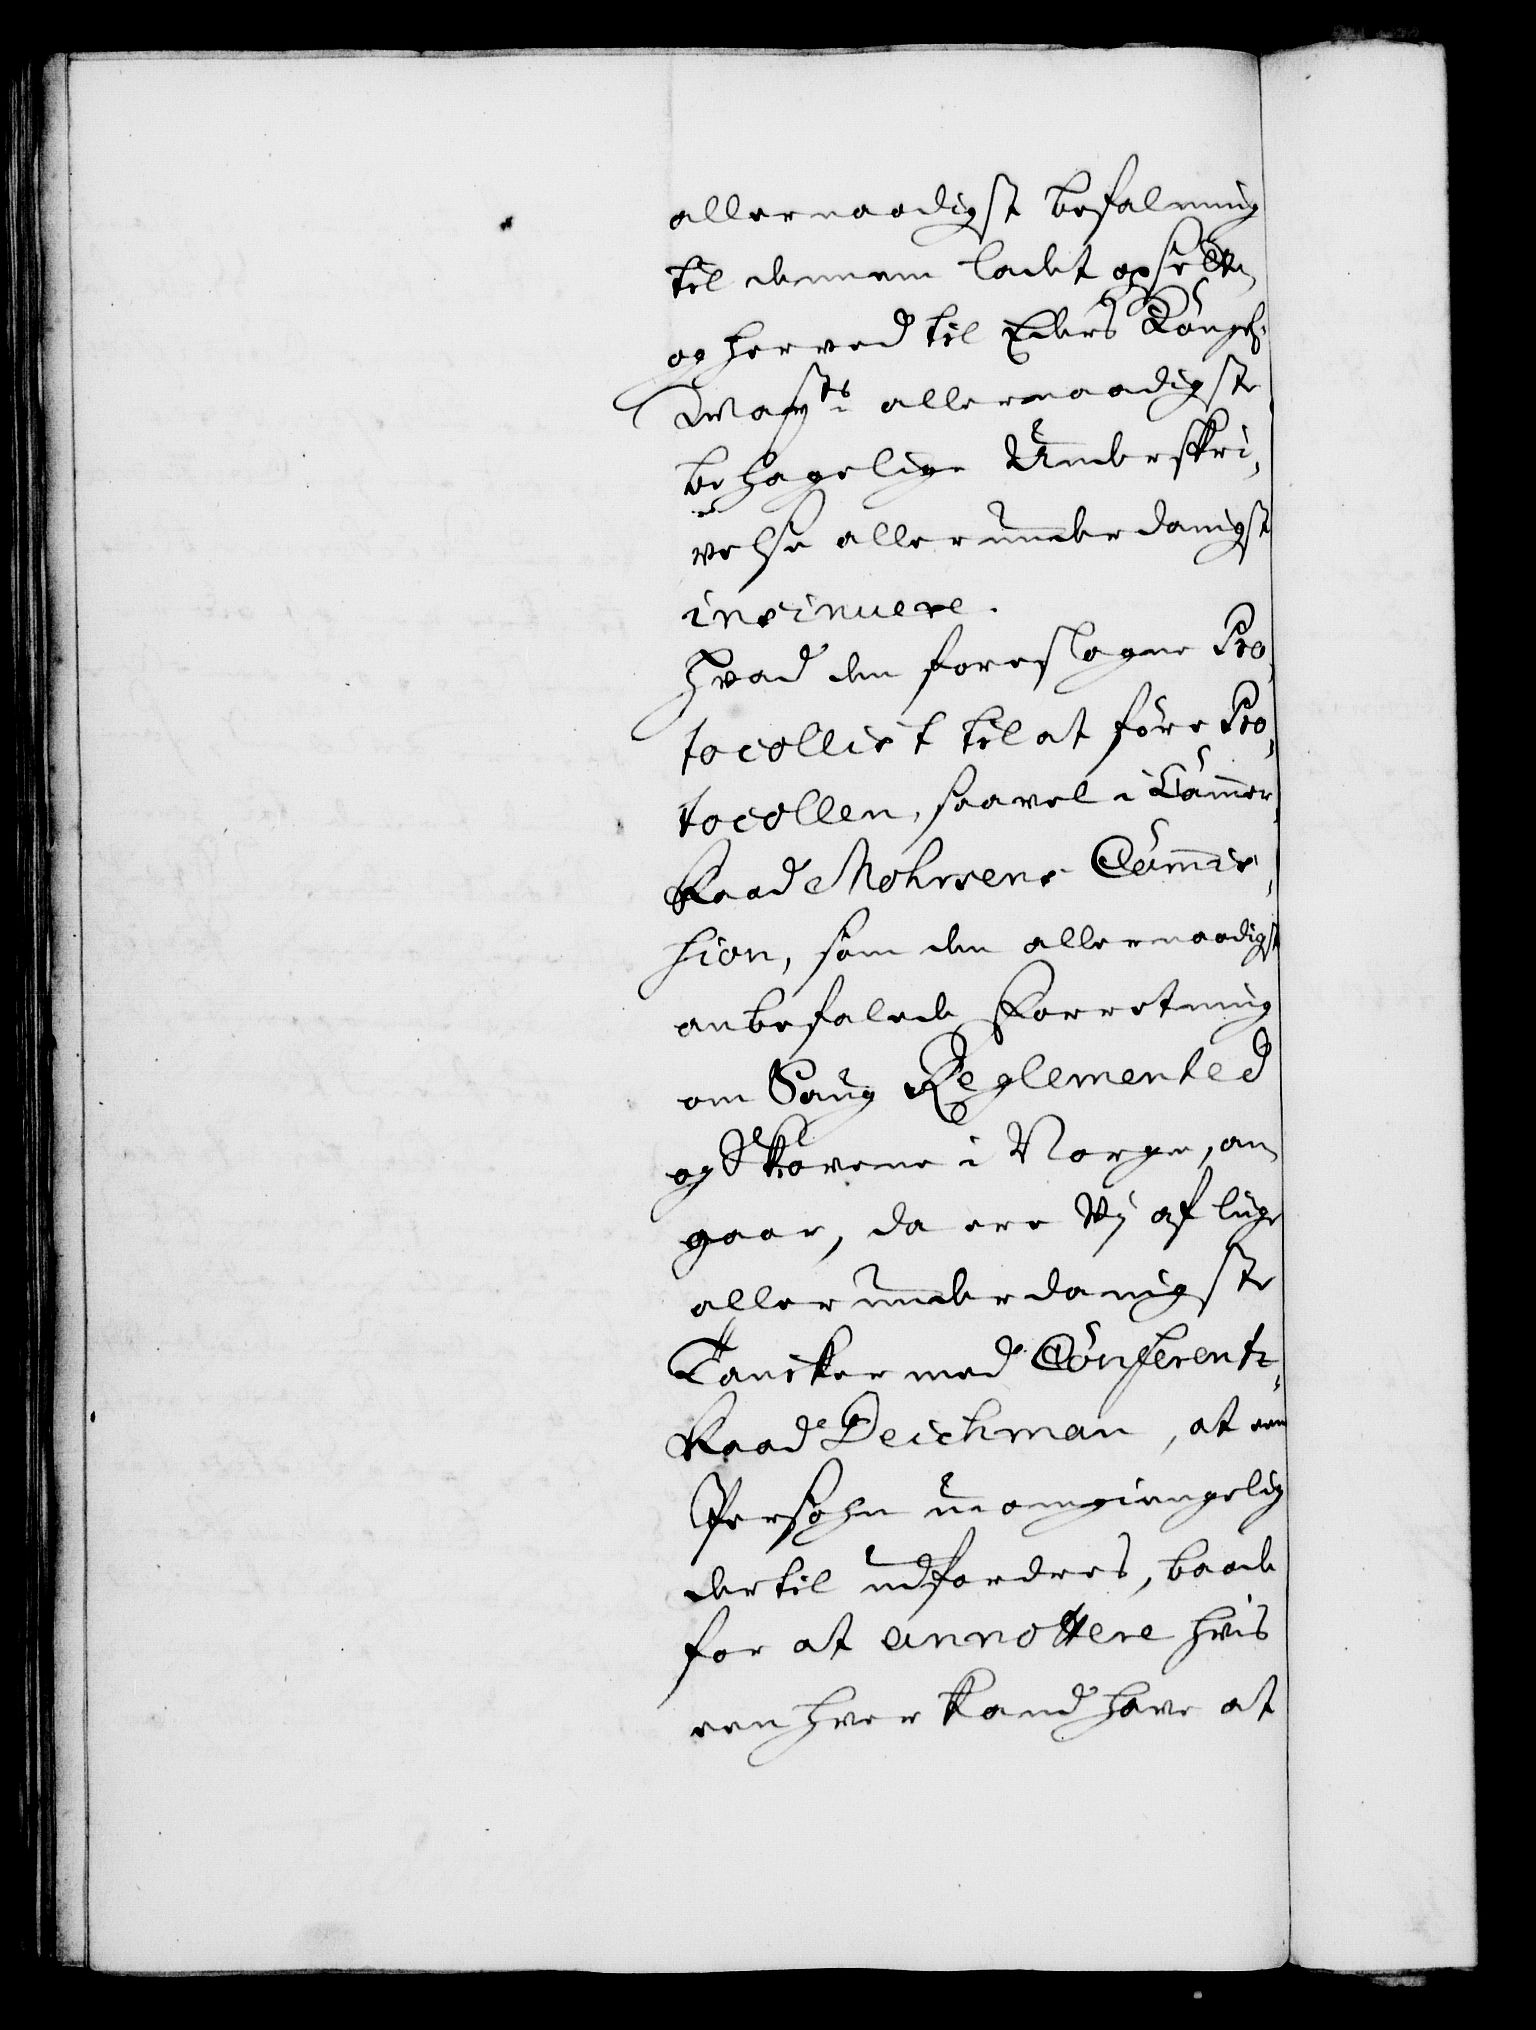 allernaadigst befalning
til dennem ladet opsette,
og herved til Eders Kongl:
Mayts: allernaadigste
behagelige Underskri,
velse allerunderdanigst
insinuere.
Hvad den foreslagne Pro,
tocollist til at före Pro,
tocollen, saavel i Cammer,
Raad Mohrsens Commis,
sion, som den allernaadigst
anbefalede Forretning
om Saug Reglemented
og Skovene i Norge, an
gaar, da ere Vj af liige
allerunderdanigste
Tancker med Conferentz,
Raad Deichman, at een
Persohn uomgiengelig
dertil udfordres, baade
for at annottere hvis
een hver kand have at